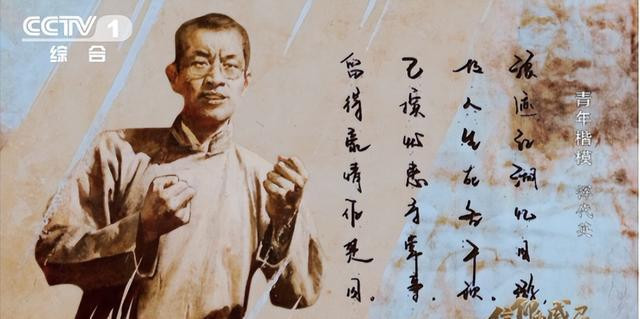 CCTV 1
综合
青年楷模 恽代英
浪迹江湖忆旧游,
故人生死各千秋。
已摈忧患寻常事,
留得豪情作楚囚。